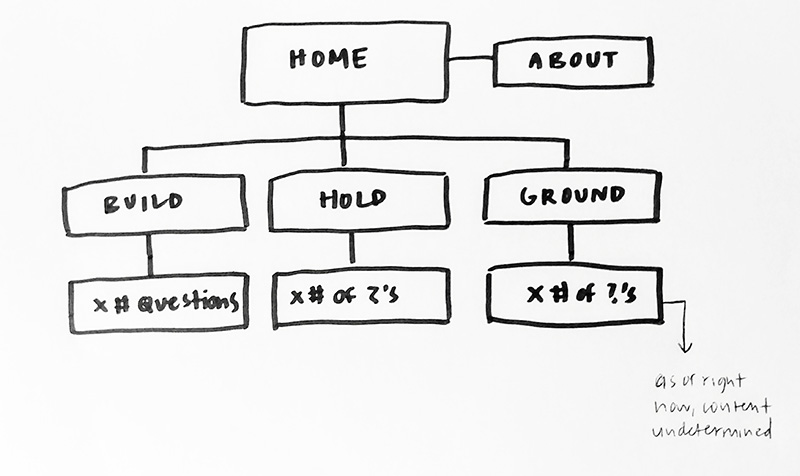 HOME
ABOUT
BUILD
HOLD
GROUND
x # questions
x # of ?'s
x # of ?'s
as of right
now, content
undetermined